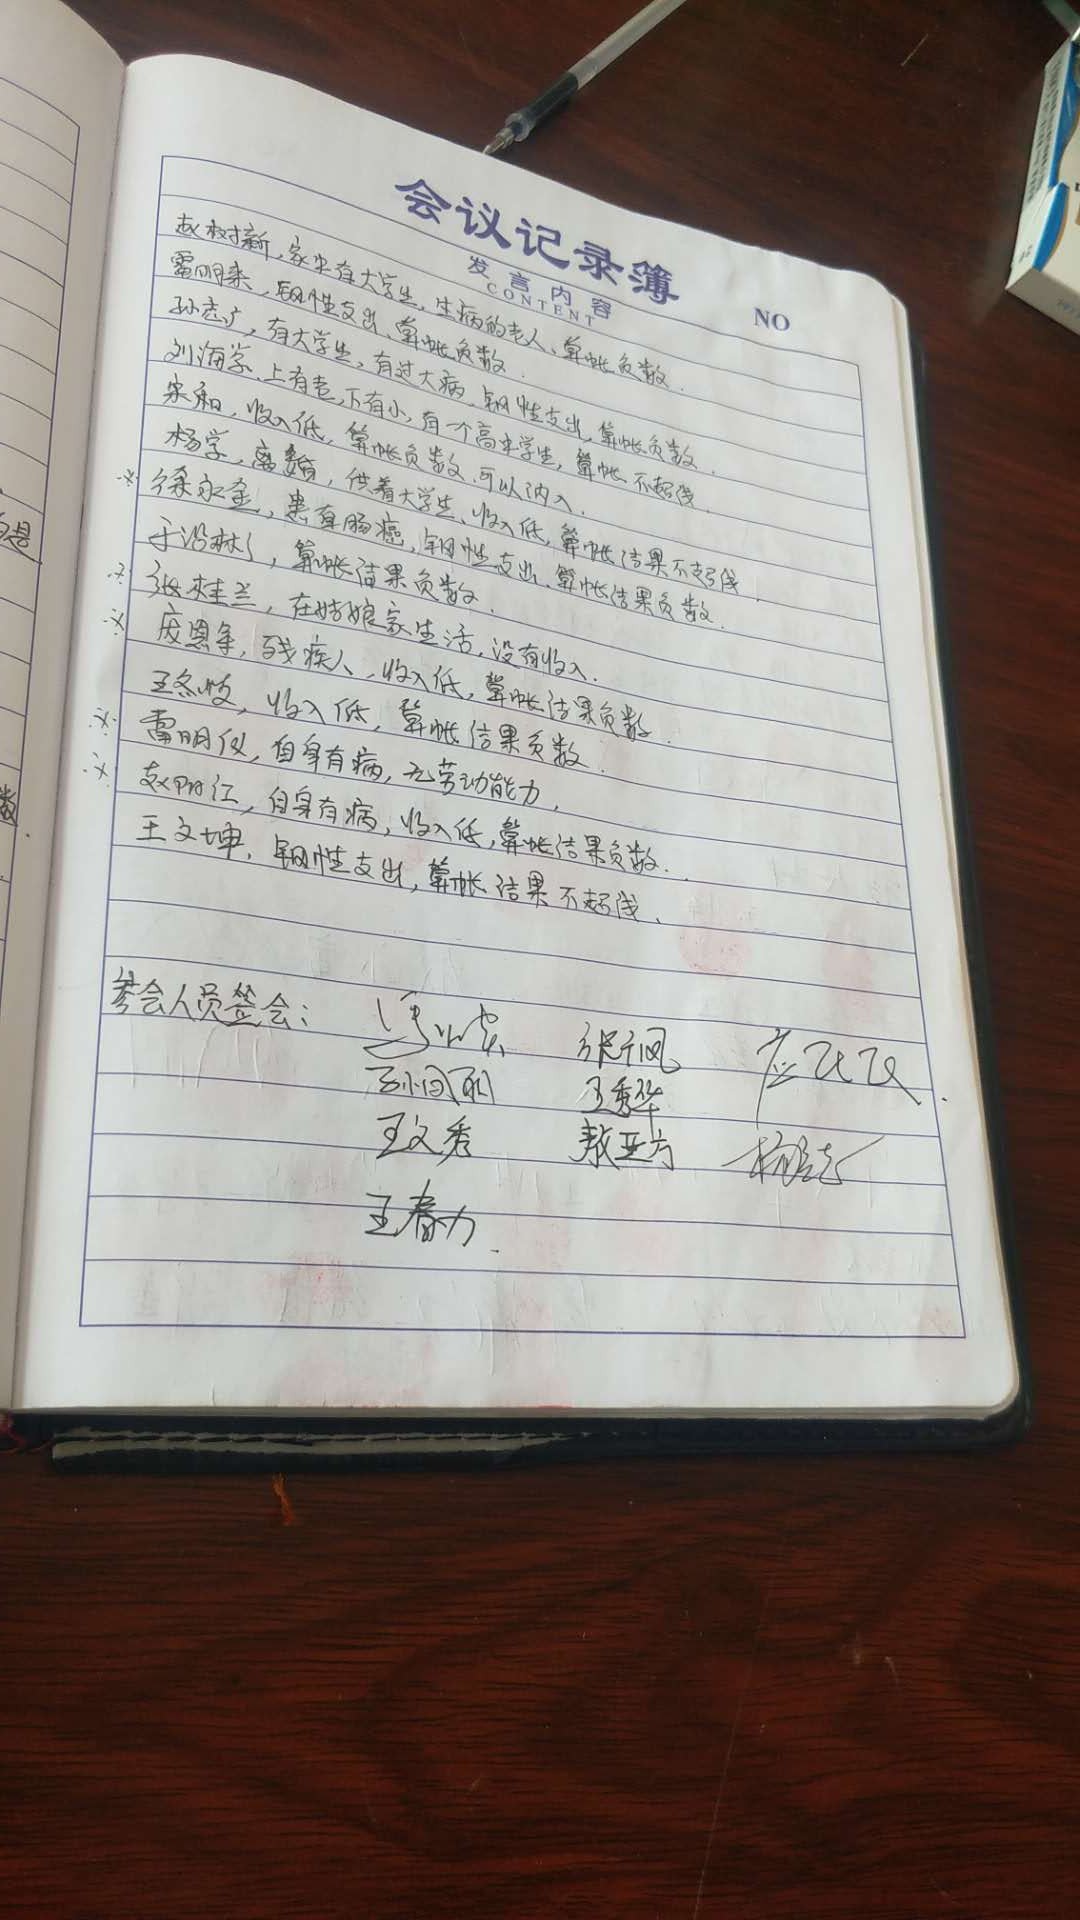 会议记录簿
发言内容
CONTENT
NO
赵树新,家中有大学生,生病的老人、算帐负数.
雷明来,钢性支出、算帐负数.
孙志广,有大学生,有过大病,钢性支出,算帐负数.
刘海学.上有老,下有小,有一个高中学生,算帐不超线.
宋和,收入低,算帐负数,可以纳入.
杨学,离婚,供着大学生、收入低,算帐结果不超线.
※徐永金,患有肠癌,钢性支出、算帐结果负数.
于沿林,算帐结果负数.
※张桂兰,在姑娘家生活,没有收入.
※庞恩余,残疾人,收入低,算帐结果负数.
王冬枝,收入低,算帐结果负数.
※雷明仪,自身有病,无劳动能力.
※赵明江,自身有病,收入低,算帐结果负数.
王文坤,钢性支出,算帐结果不超线.
参会人员签会:
王秀华
王文秀 敖亚方
王春力.